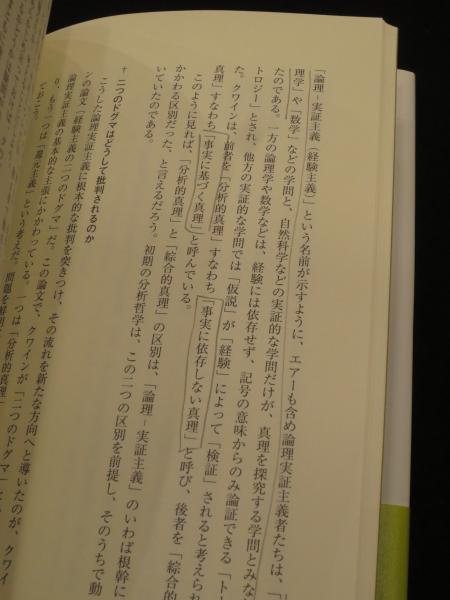 「論理‐実証主義(経験主義)」という名前が示すように、エアーも含め論理実証主義者たちは、「
理学」や「数学」などの学問と、自然科学などの実証的な学問だけが、真理を探究する学問とみな
たのである。一方の論理学や数学などは、経験には依存せず、記号の意味からのみ論証できる「ト
トロジー」とされ、他方の実証的な学問では「仮説」が「経験」によって「検証」されると考えられ
た。クワインは、前者を「分析的真理」すなわち「事実に依存しない真理」と呼び、後者を「綜合的
真理」すなわち「事実に基づく真理」と呼んでいる。
このように見れば、「分析的真理」と「綜合的真理」の区別は、「論理‐実証主義」のいわば根幹に
かかわる区別だった、と言えるだろう。初期の分析哲学は、この二つの区別を前提し、そのうちで動
いていたのである。
†二つのドグマはどうして批判されるのか
こうした論理実証主義に根本的な批判を突きつけ、その流れを新たな方向へと導いたのが、クワイ
ンの論文「経験主義の二つのドグマ」だ。この論文で、クワインが「二つのドグマ」
論理実証主義の基本的な主張にかかわっている。一つは「分析的真理」
り、もう一つは「還元主義」という考えだ。
ておこう。